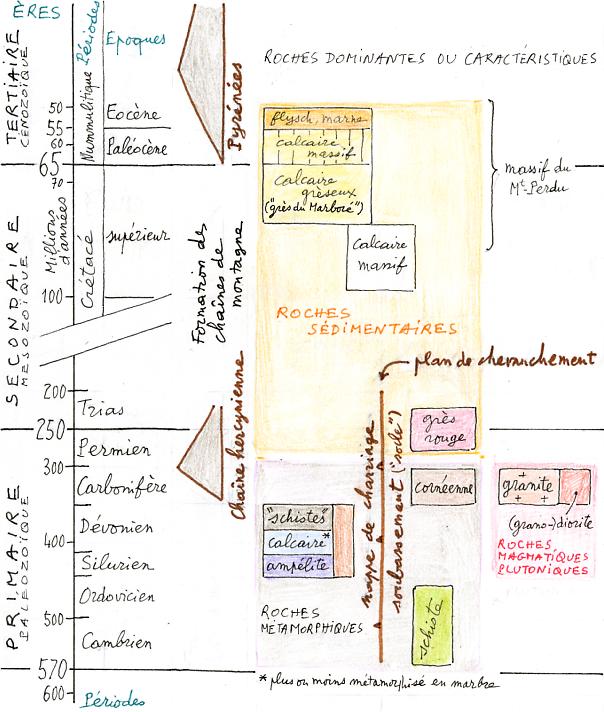 ÈRES
Périodes
Époques
ROCHES DOMINANTES OU CARACTÉRISTIQUES
TERTIAIRE
CÉNOZOÏQUE
Nummulitique
Pyrénées
50
Eocène
55
60
Paléocène
65
flysch, marne
calcaire
massif
calcaire
gréseux
("grès du Marboré")
massif du
Mt-Perdu
SECONDAIRE
MÉSOZOÏQUE
Millions
d'années
70
Crétacé
supérieur
100
Formation des
chaînes de
montagne
calcaire
massif
ROCHES
SÉDIMENTAIRES
plan de chevauchement
200
Trias
250
grès
rouge
PRIMAIRE
PALÉOZOÏQUE
Permien
300
Carbonifère
Chaîne hercynienne
nappe de charriage
soubassement ("socle")
cornéenne
granite
(grano-)diorite
ROCHES
MAGMATIQUES
PLUTONIQUES
Dévonien
400
Silurien
Ordovicien
500
Cambrien
570
600
Périodes
"schistes"
calcaire*
ampélite
ROCHES
MÉTAMORPHIQUES
schiste
* plus ou moins métamorphisé en marbre